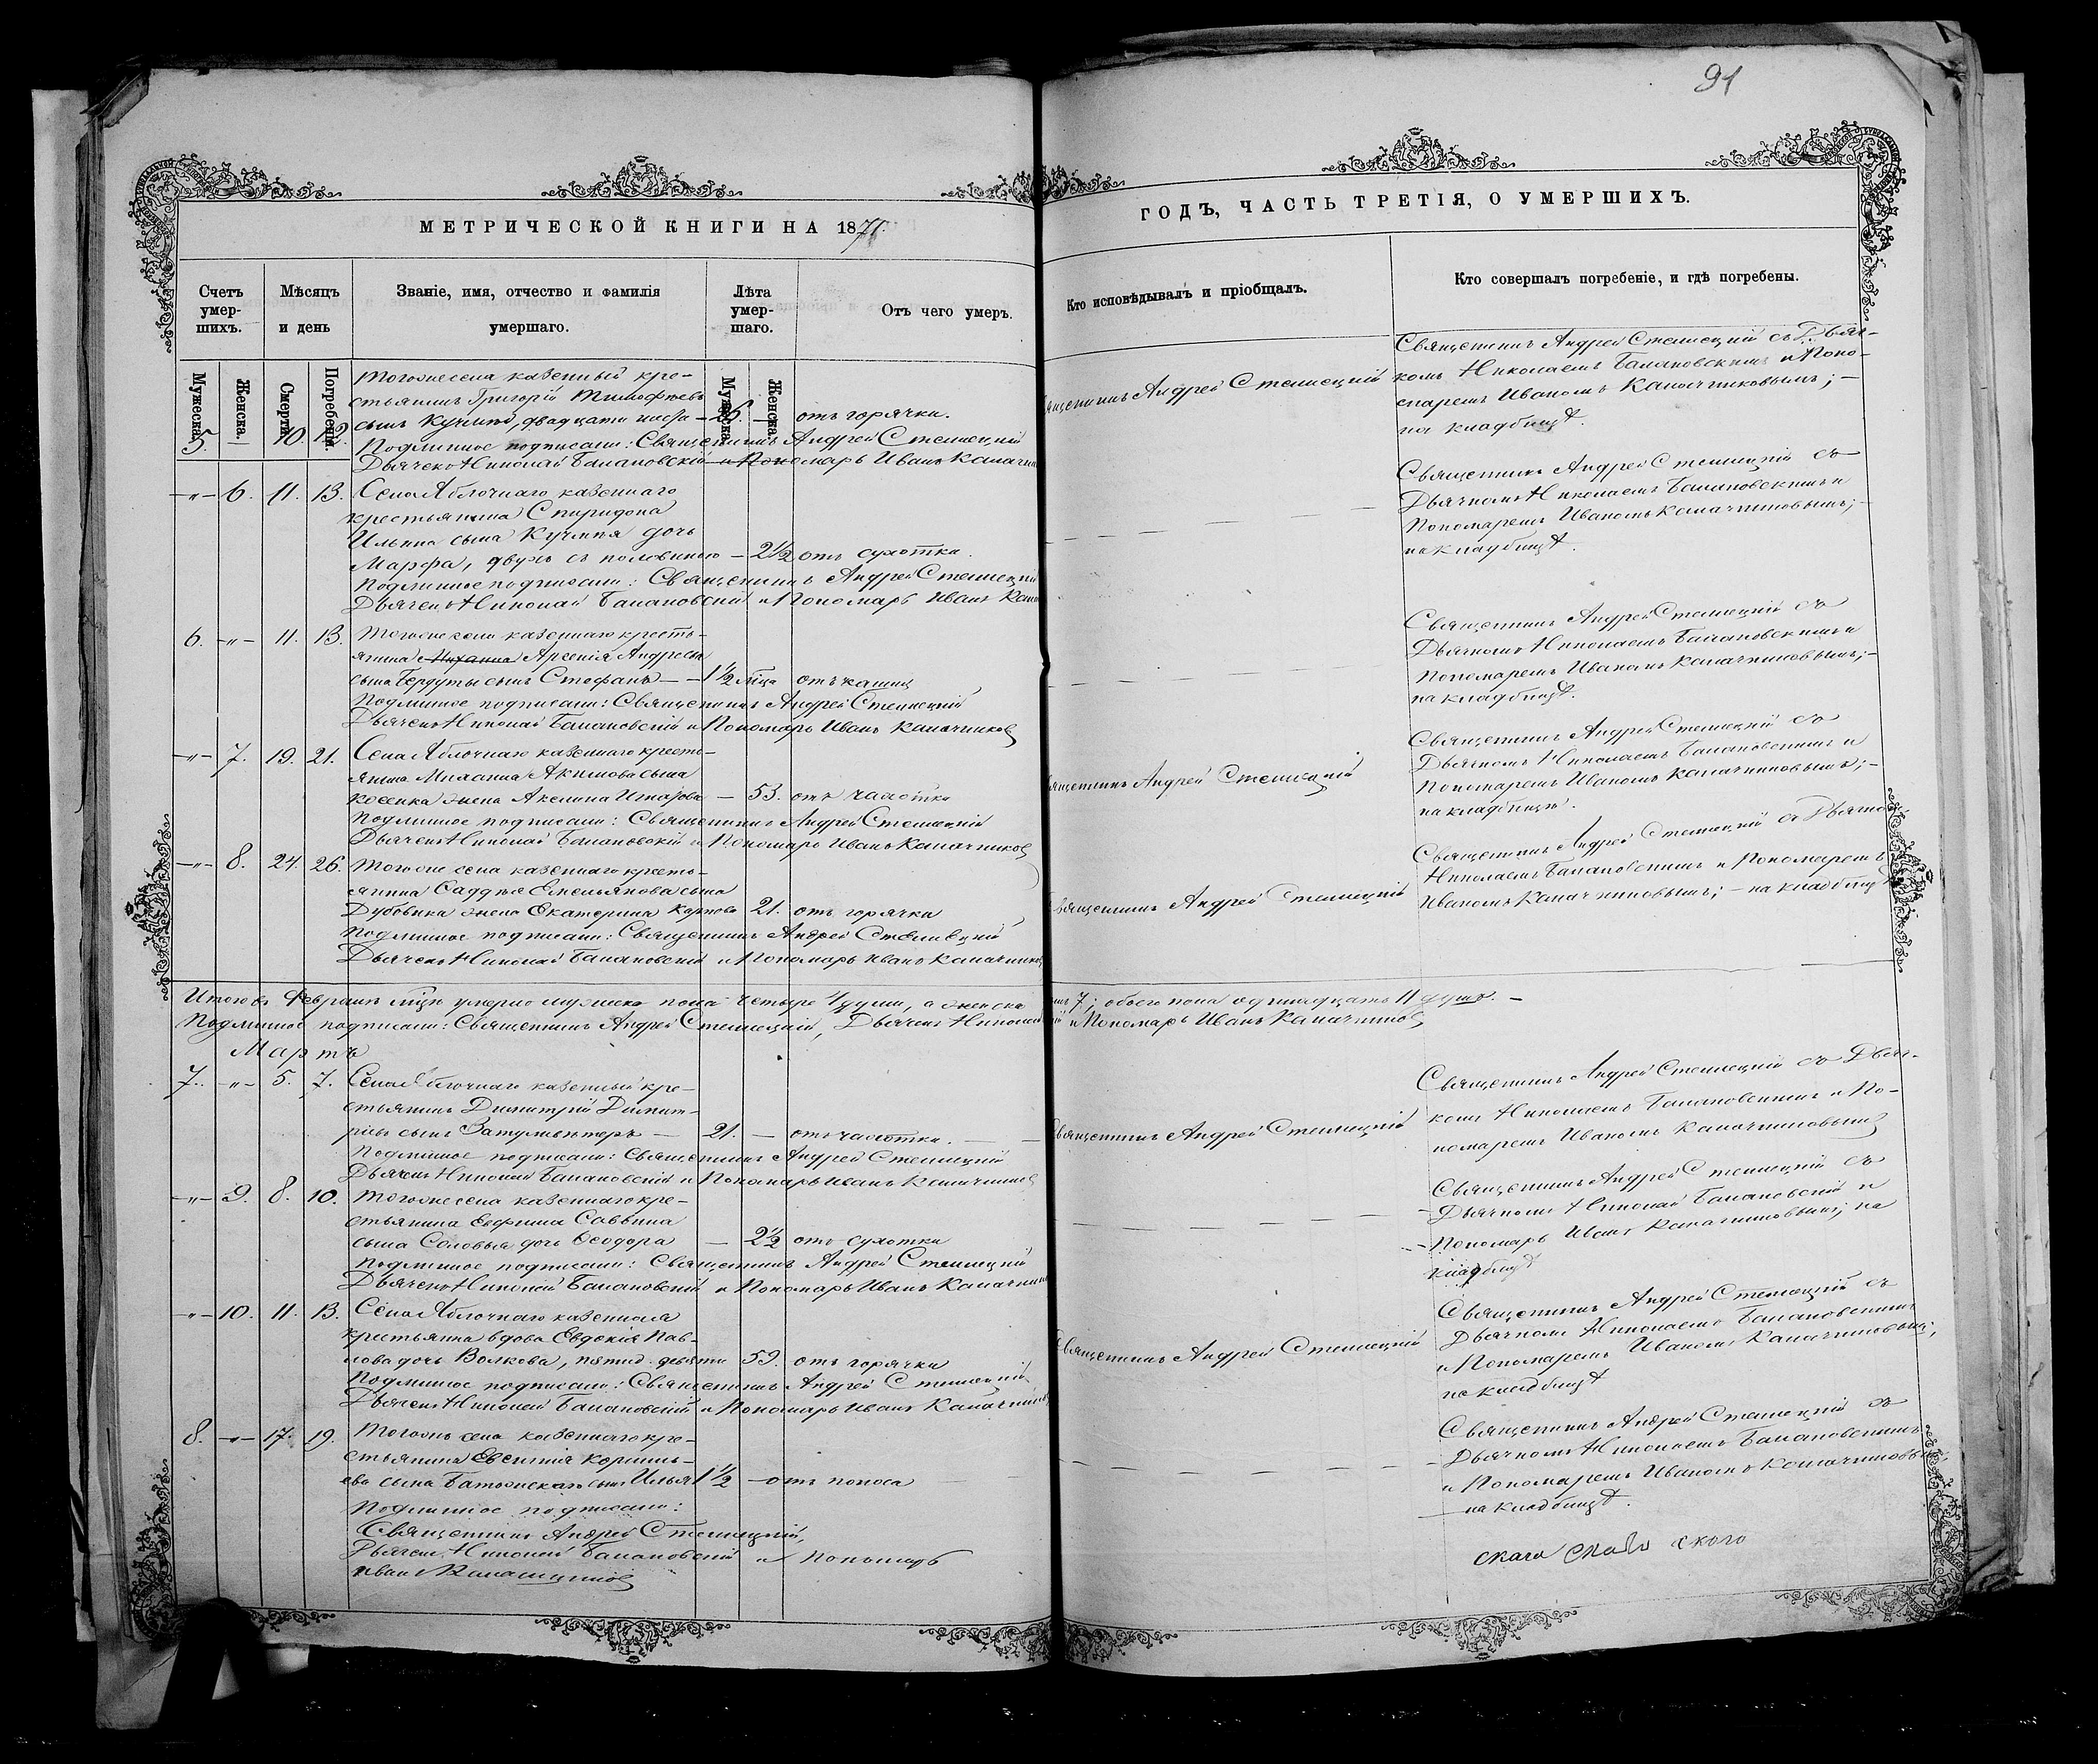 91
МЕТРИЧЕСКОЙ КНИГИ НА 1871.
ГОДЪ, ЧАСТЬ ТРЕТІЯ, О УМЕРШИХЪ.
Счетъ умер-шихъ.
Мѣсяцъ и день
Званіе, имя, отчество и фамилія
умершаго.
Лѣта умер-шаго.
Отъ чего умеръ.
Кто исповѣдывалъ и пріобщалъ.
Кто совершалъ погребеніе, и гдѣ погребены.
Мужеска.
Женска.
Смерти.
Погребенія.
Мужеска.
Женска.
Тогоже села казенный кре-
стьянинъ Григорій Тимофѣевъ
5. — 10. 12. сынъ Кучинъ, двадцати шести — 26. отъ горячки.
Подлинное подписали: Священникъ Андрей Стешецкій
Дьячекъ Николай Балановскій и Пономарь Иванъ Калачни
Священникъ Андрей Стешецкій
Священникъ Андрей Стешецкій съ Дьяч-
комъ Николаемъ Балановскимъ и Поно-
маремъ Иваномъ Калачниковымъ; —
на кладбищѣ.
—"— 6. 11. 13. Села Яблочнаго казеннаго
крестьянина Спиридона
Ильина сына Кучина дочь
Марфа, двухъ съ половиною — 2½ отъ сухотки.
Подлинное подписали: Священникъ Андрей Стешецкій
Дьячекъ Николай Балановскій и Пономарь Иванъ Кала
Священникъ Андрей Стешецкій съ
Дьячкомъ Николаемъ Балановскимъ и
Пономаремъ Иваномъ Калачниковымъ; —
на кладбищѣ.
6. —"— 11. 13. Тогоже села казеннаго кресть-
янина Михаила Арсенія Андреева
сына Бердуты сынъ Стефанъ — — 1½ м͠ца отъ кашля
Подлинное подписали: Священникъ Андрей Стешецкій
Дьячекъ Николай Балановскій и Пономарь Иванъ Калачниковъ
Священникъ Андрей Стешецкій съ
Дьячкомъ Николаемъ Балановскимъ и
Пономаремъ Иваномъ Калачниковымъ; —
на кладбищѣ.
—"— 7. 19. 21. Села Яблочнаго казеннаго кресть-
янина Михаила Акимова сына
Косенка жена Акелина — 53. отъ чахотки
Подлинное подписали: Священникъ Андрей Стешецкій
Дьячекъ Николай Балановскій и Пономарь Иванъ Калачниковъ
Священникъ Андрей Стешецкій
Священникъ Андрей Стешецкій съ
Дьячкомъ Николаемъ Балановскимъ и
Пономаремъ Иваномъ Калачниковымъ; —
на кладбищѣ.
—"— 8. 24. 26. Тогоже села казеннаго кресть-
янина Саддѣя Емельянова сына
Дубовика жена Екатерина Карпова 21. отъ горячки
Подлинное подписали: Священникъ Андрей Стешецкій
Дьячекъ Николай Балановскій и Пономарь Иванъ Калачников
Священникъ Андрей Стешецкій
Священникъ Андрей Стешецкій съ Дьячко
Николаемъ Балановскимъ и Пономаремъ
Иваномъ Калачниковымъ; — на кладбищѣ
Итого въ Февралѣ м͠цѣ умерло мужеска пола четыре 4 души, а женска 7; обоего пола одинадцать 11 душъ. —
Подлинное подписали: Священникъ Андрей Стешецкій, Дьячекъ Николай и Пономарь Иванъ Калачниковъ
Мартъ
7. —"— 5. 7. Села Яблочнаго казенный кре-
стьянинъ Димитрій Димит-
ріевъ сынъ — 21. — отъ чахотки. —
Подлинное подписали: Священникъ Андрей Стешецкій
Дьячекъ Николай Балановскій и Пономарь Иванъ Калачников
Священникъ Андрей Стешецкій
Священникъ Андрей Стешецкій съ Дьяч-
комъ Николаемъ Балановскимъ и По-
номаремъ Иваномъ Калачниковымъ
—"— 9. 8. 10. Тогоже села казеннаго кре-
стьянина Евфима Саввина
сына Соловья дочь Ѳеодора — 2½ отъ сухотки
Подлинное подписали: Священникъ Андрей Стешецкій
Дьячекъ Николай Балановскій и Пономарь Иванъ Калачник
Священникъ Андрей Стешецкій съ
Дьячкомъ Николай Балановскій и
Пономарь Иванъ Калачниковымъ; на
кладбищѣ
—"— 10. 11. 13. Села Яблочнаго казенная
крестьянка вдова Евдокія Пав-
лова дочь Волкова, пятид. девяти 59. отъ горячки
Подлинное подписали: Священникъ Андрей Стешецкій
Дьячекъ Николай Балановскій и Пономарь Иванъ Калачник
Священникъ Андрей Стешецкій
Священникъ Андрей Стешецкій съ
Дьячкомъ Николаемъ Балановскимъ
и Пономаремъ Иваномъ Калачниковымъ;
на кладбищѣ
8. —"— 17. 19. Тогожъ села казеннаго кре-
стьянина Евсентія Корниль-
ева сына сынъ Илья 1½ — отъ поноса
Подлинное подписали:
Священникъ Андрей Стешецкій,
Дьячекъ Николай Балановскій и Пономарь
Иванъ Калашниковъ
Священникъ Андрей Стешецкій съ
Дьячкомъ Николаемъ Балановскимъ
и Пономаремъ Иваномъ Калачниковымъ,
на кладбищѣ.
скаго скаго скаго